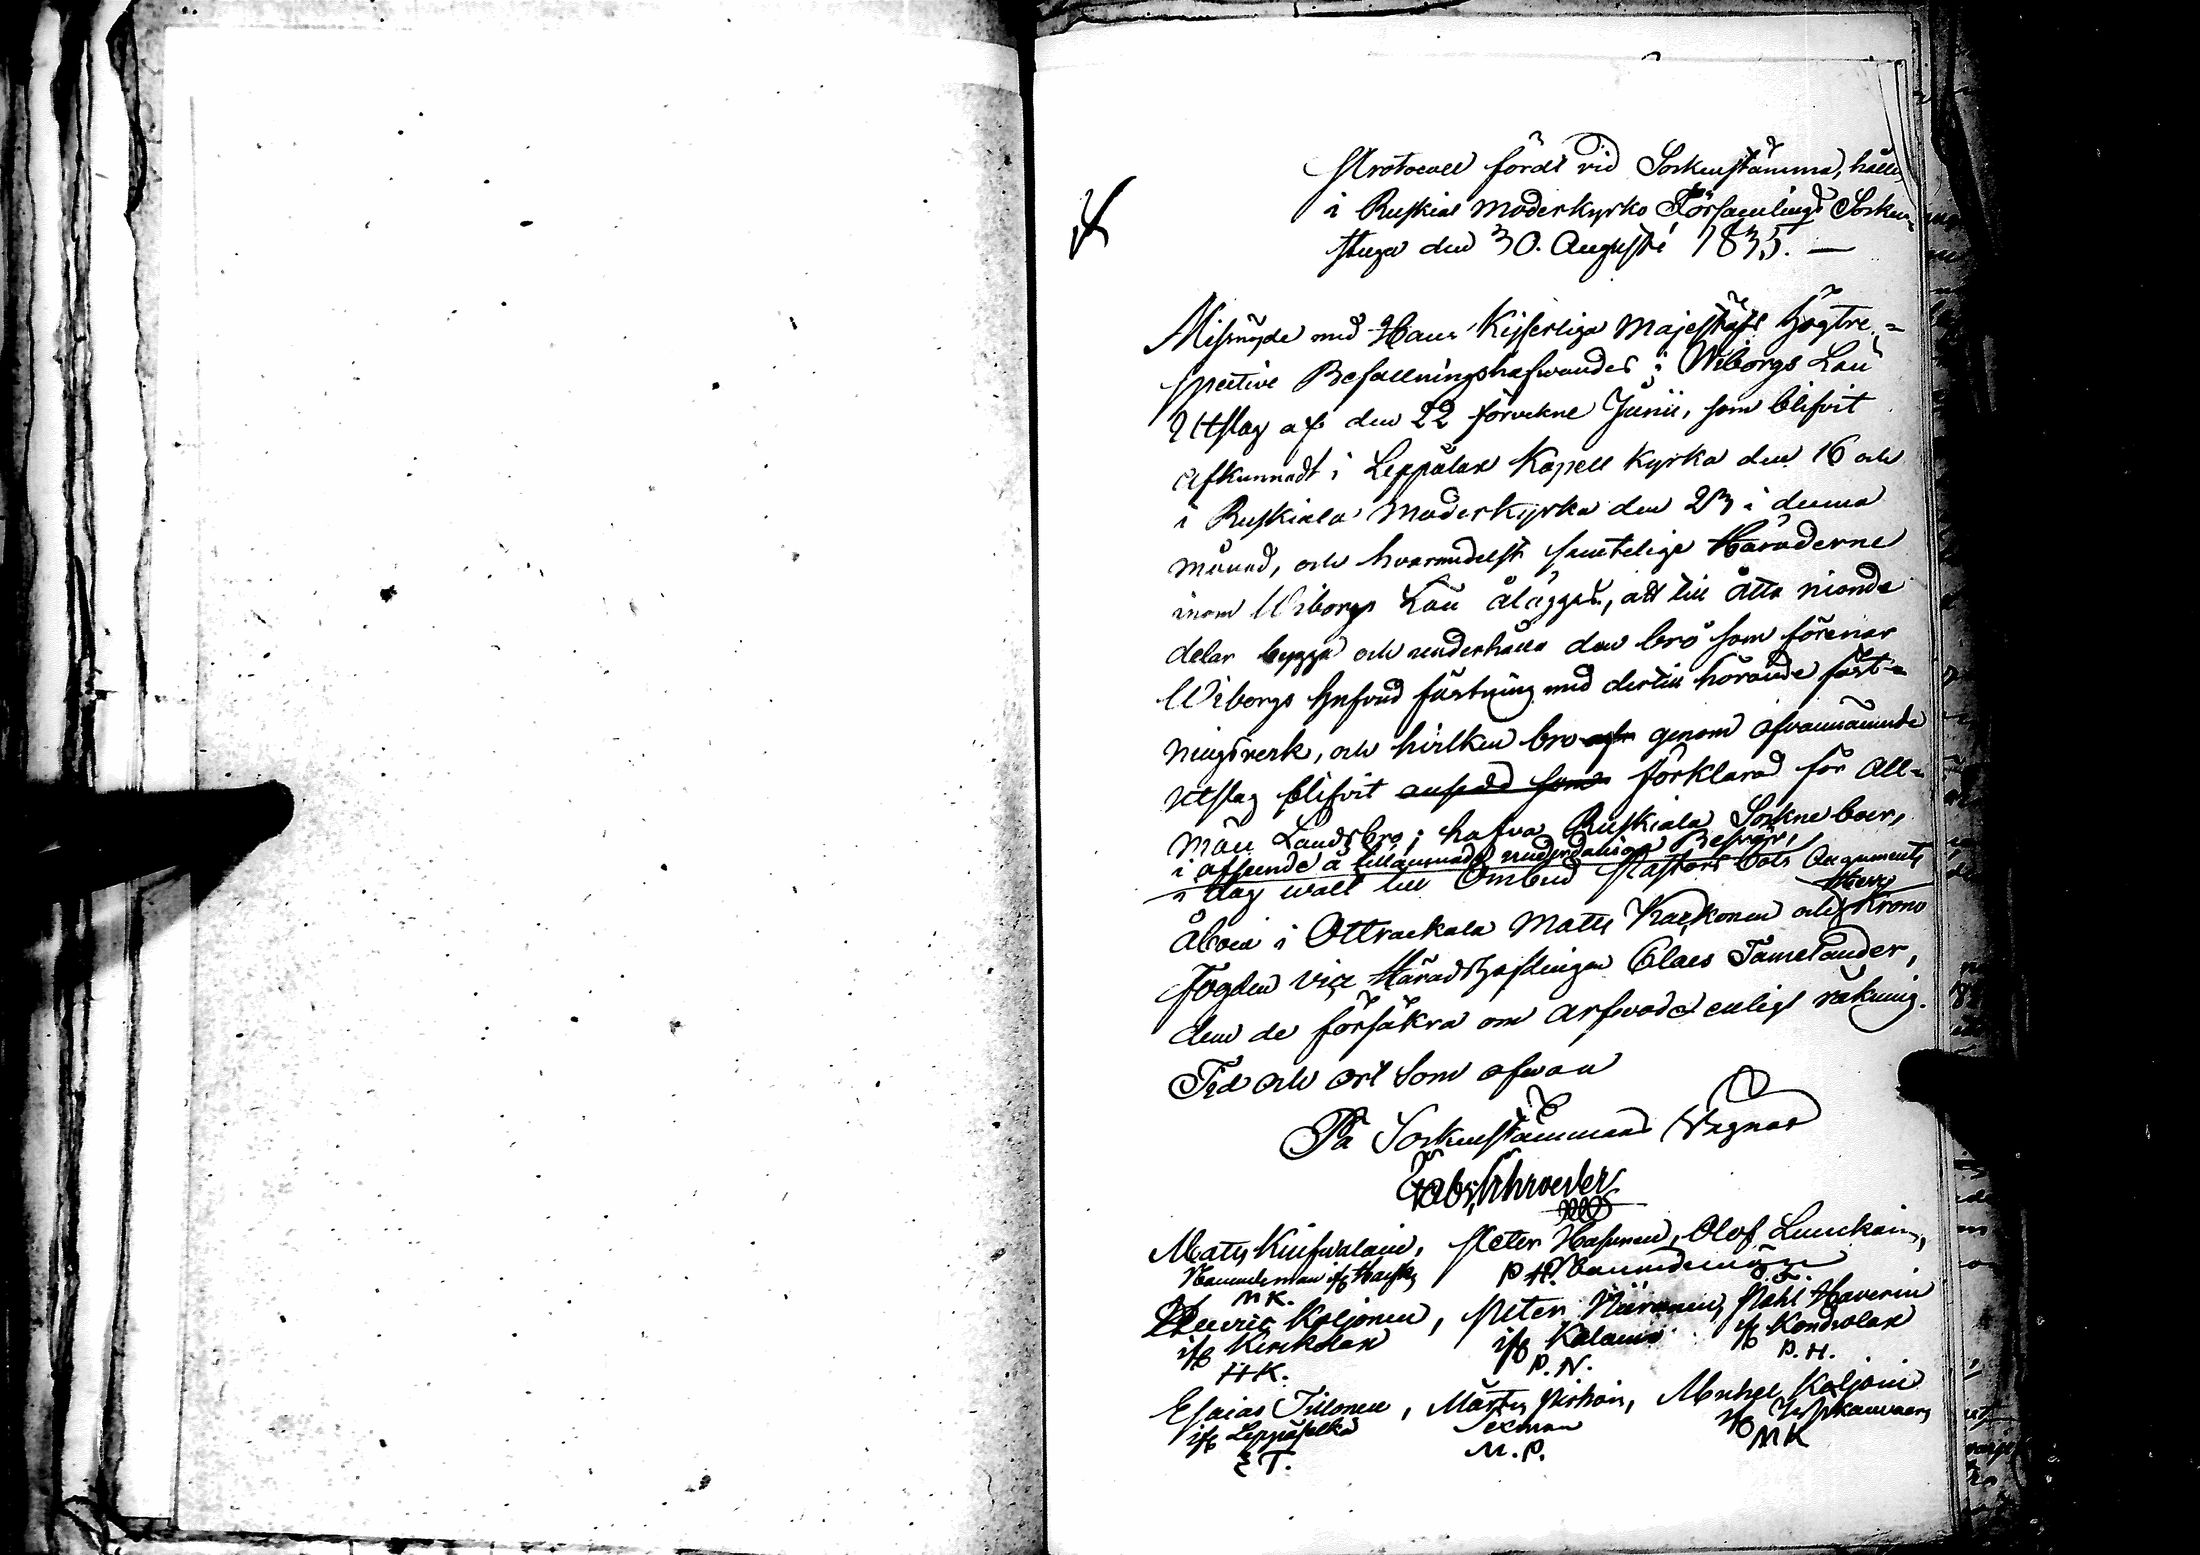 Protocoll fördt vid Sockenstämma, hållen
i Ruskiala Moderkyrko Församlings Socken-
stuga den 30. Augusti 1835. —
Missnögde med Hans Kejserliga Majestäts högtre-
spective Befallningshafwandes i Wiborgs Län
Utslag af den 22 förvekne Junii, som blifvit
afkunnadt i Leppälax Kapell kyrka den 16 och
i Ruskiala Moderkyrka den 23 i denna
månad, och hvarmedelst samtelige Häraderne
inom Wiborgs Län ålägges, att till åtta nionde
delar bygga och underhålla den bro som förenar
Wiborgs hufvud fästning med dertill hörande fäst-
ningsverk, och hvilken bro genom ofvannämnde
utslag blifvit ansedd som förklarad för all-
män Landsbro; hafva Ruskiala Sockneboer,
i afseende å tillämnade underdåniga Besvär,
i dag walt till Ombud Pastors Bols Arguments
Åboen i Ottrackala Matts Karkonen och Krono
Fogden vice Häradshöfdingen Claes Tamelander,
dem de försäkra om arfvode enligt räkning.
Tid och ort som ofwan
På Sockenstämmans Vägnar
Schroeder
Matts Kinfwalain, Peter Hasunen, Olof Lunckain,
Nämndeman if P.H. Nämndemän
MK.
Henric Koljonen, Peter Niironen, Påhl Haverin
if Kirckolax if Kalamo if Kondwolax
H.K. P.N. P.H.
Esaias Tillonen, Mårten Pirhoin, Michel Koljoin
if Leppäselkä Sexman if
E T. M.P. MK